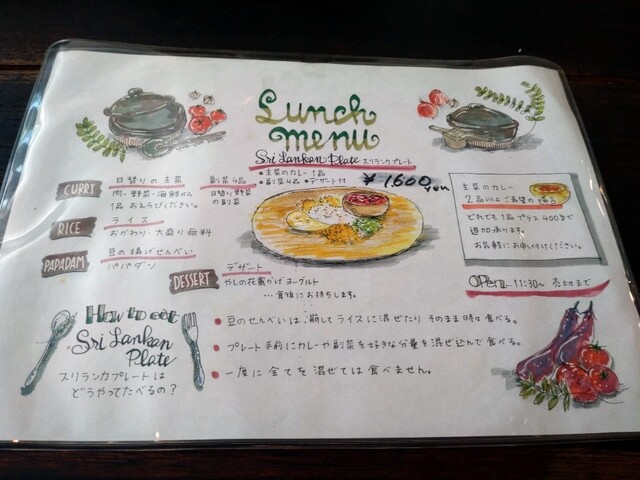 Lunch
menu
Sri Lankan Plate スリランカプレート
・主菜のカレー 1品
・副菜4品 ・デザート付
¥1,600yen
CURRY
日替りの主菜
肉・野菜・海鮮から
1品 お選びください。
副菜4品
日替り野菜
の副菜
RICE
ライス
おかわり・大盛り無料
PAPADAM
豆の揚げせんべい
パパダン
DESSERT
デザート
やしの花蜜がけヨーグルト
…食後にお持ちします。
主菜のカレー
2品以上ご希望の場合
どれでも1品プラス400円で
追加承ります。
お気軽にお申し付けください。
OPEN 11:30〜 売切まで
How to eat
Sri Lankan
Plate
スリランカプレートは
どうやってたべるの?
・豆のせんべいは、崩してライスに混ぜたり そのまま時々食べる。
・プレート手前にカレーや副菜を好きな分量を混ぜ込んで食べる。
・一度に全てを混ぜては食べません。